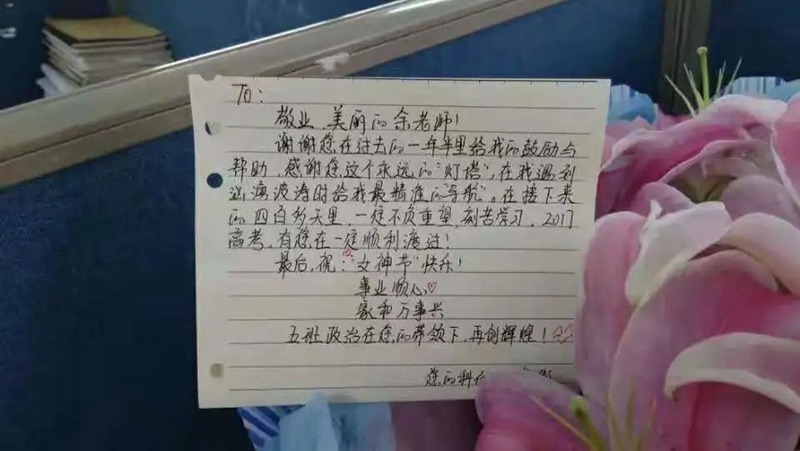 TO:
敬业、美丽的余老师!
谢谢您在过去的一年半里给我的鼓励与
帮助,感谢您这个永远的“灯塔”,在我遇到
汹涌波涛时给我最精准的“导航”。在接下来
的四百多天里,一定不负重望,刻苦学习,2017
高考,有您在一定顺利渡过!
最后,祝:“女神节”快乐!
事业顺心♡
家和万事兴
五班政治在您的带领下,再创辉煌!
您的科代